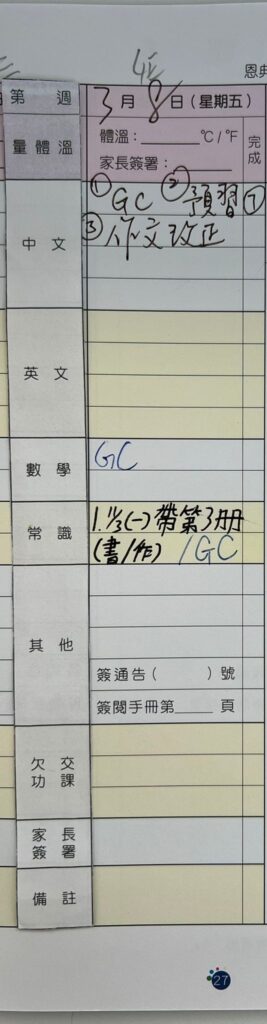 4E
恩典
第 週
3月8日(星期五)
完成
量體溫
體溫：______℃/℉
家長簽署：______
中文
① GC ② 預習⑦
③ 作文改正
英文
數學
GC
常識
1. 11/3(一)帶第3冊
(書/作) /GC
其他
簽通告( )號
簽閱手冊第____頁
欠交功課
家長簽署
備註
27